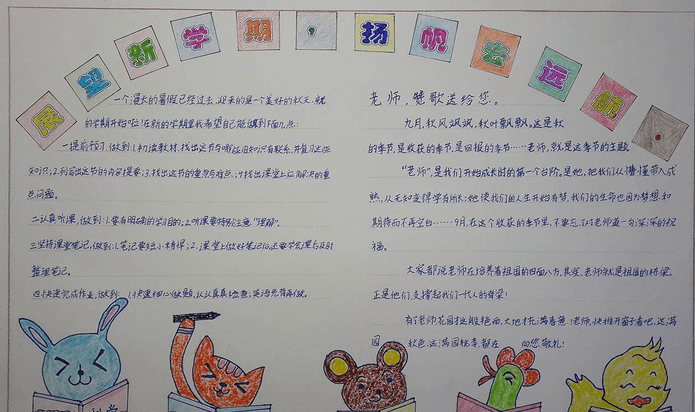 展望新学期，扬帆去远航。
一个漫长的暑假已经过去，迎来的是一个美好的秋天，新
的学期开始啦！在新的学期里我希望自己能做到下面几点：
一提前预习，做到：1.初读教材，找出这节与哪些旧知识有联系，并复习这些
知识；2.列写出这节的内容提要；3.找出这节的重点与难点；4.找出课堂上应解决的重
点问题。
二认真听课，做到：1.要有明确的学习目的；2.听课要特别注意“理解”。
三坚持课堂笔记，做到：1.笔记要短小精悍；2.课堂上做好笔记后还要学会课后及时
整理笔记。
四快速完成作业，做到：1.快速细心做题，认认真真检查；英语先背再做。
老师，赞歌送给您。
九月，秋风飒飒，秋叶飘飘。这是秋
的季节，是收获的季节，是回报的季节……老师，就是这季节的主题
“老师”，是我们开始成长时的第一个台阶。是她，把我们从懵懂带入成
熟，从无知变得学有所长；她使我们的人生开始有梦，我们的生命也因为梦想和
期待而不再空白……9月，在这个收获的季节里，不要忘了对老师道一句深深的祝
福。
大家都说老师在培养着祖国的四面八方，其实，老师就是祖国的桥梁。
正是他们，支撑起我们一代人的脊梁！
有了老师，花园才这般艳丽，大地才充满春意！老师，快推开窗子看吧，这满
园 秋色，这满园桃李，都在 向您敬礼！